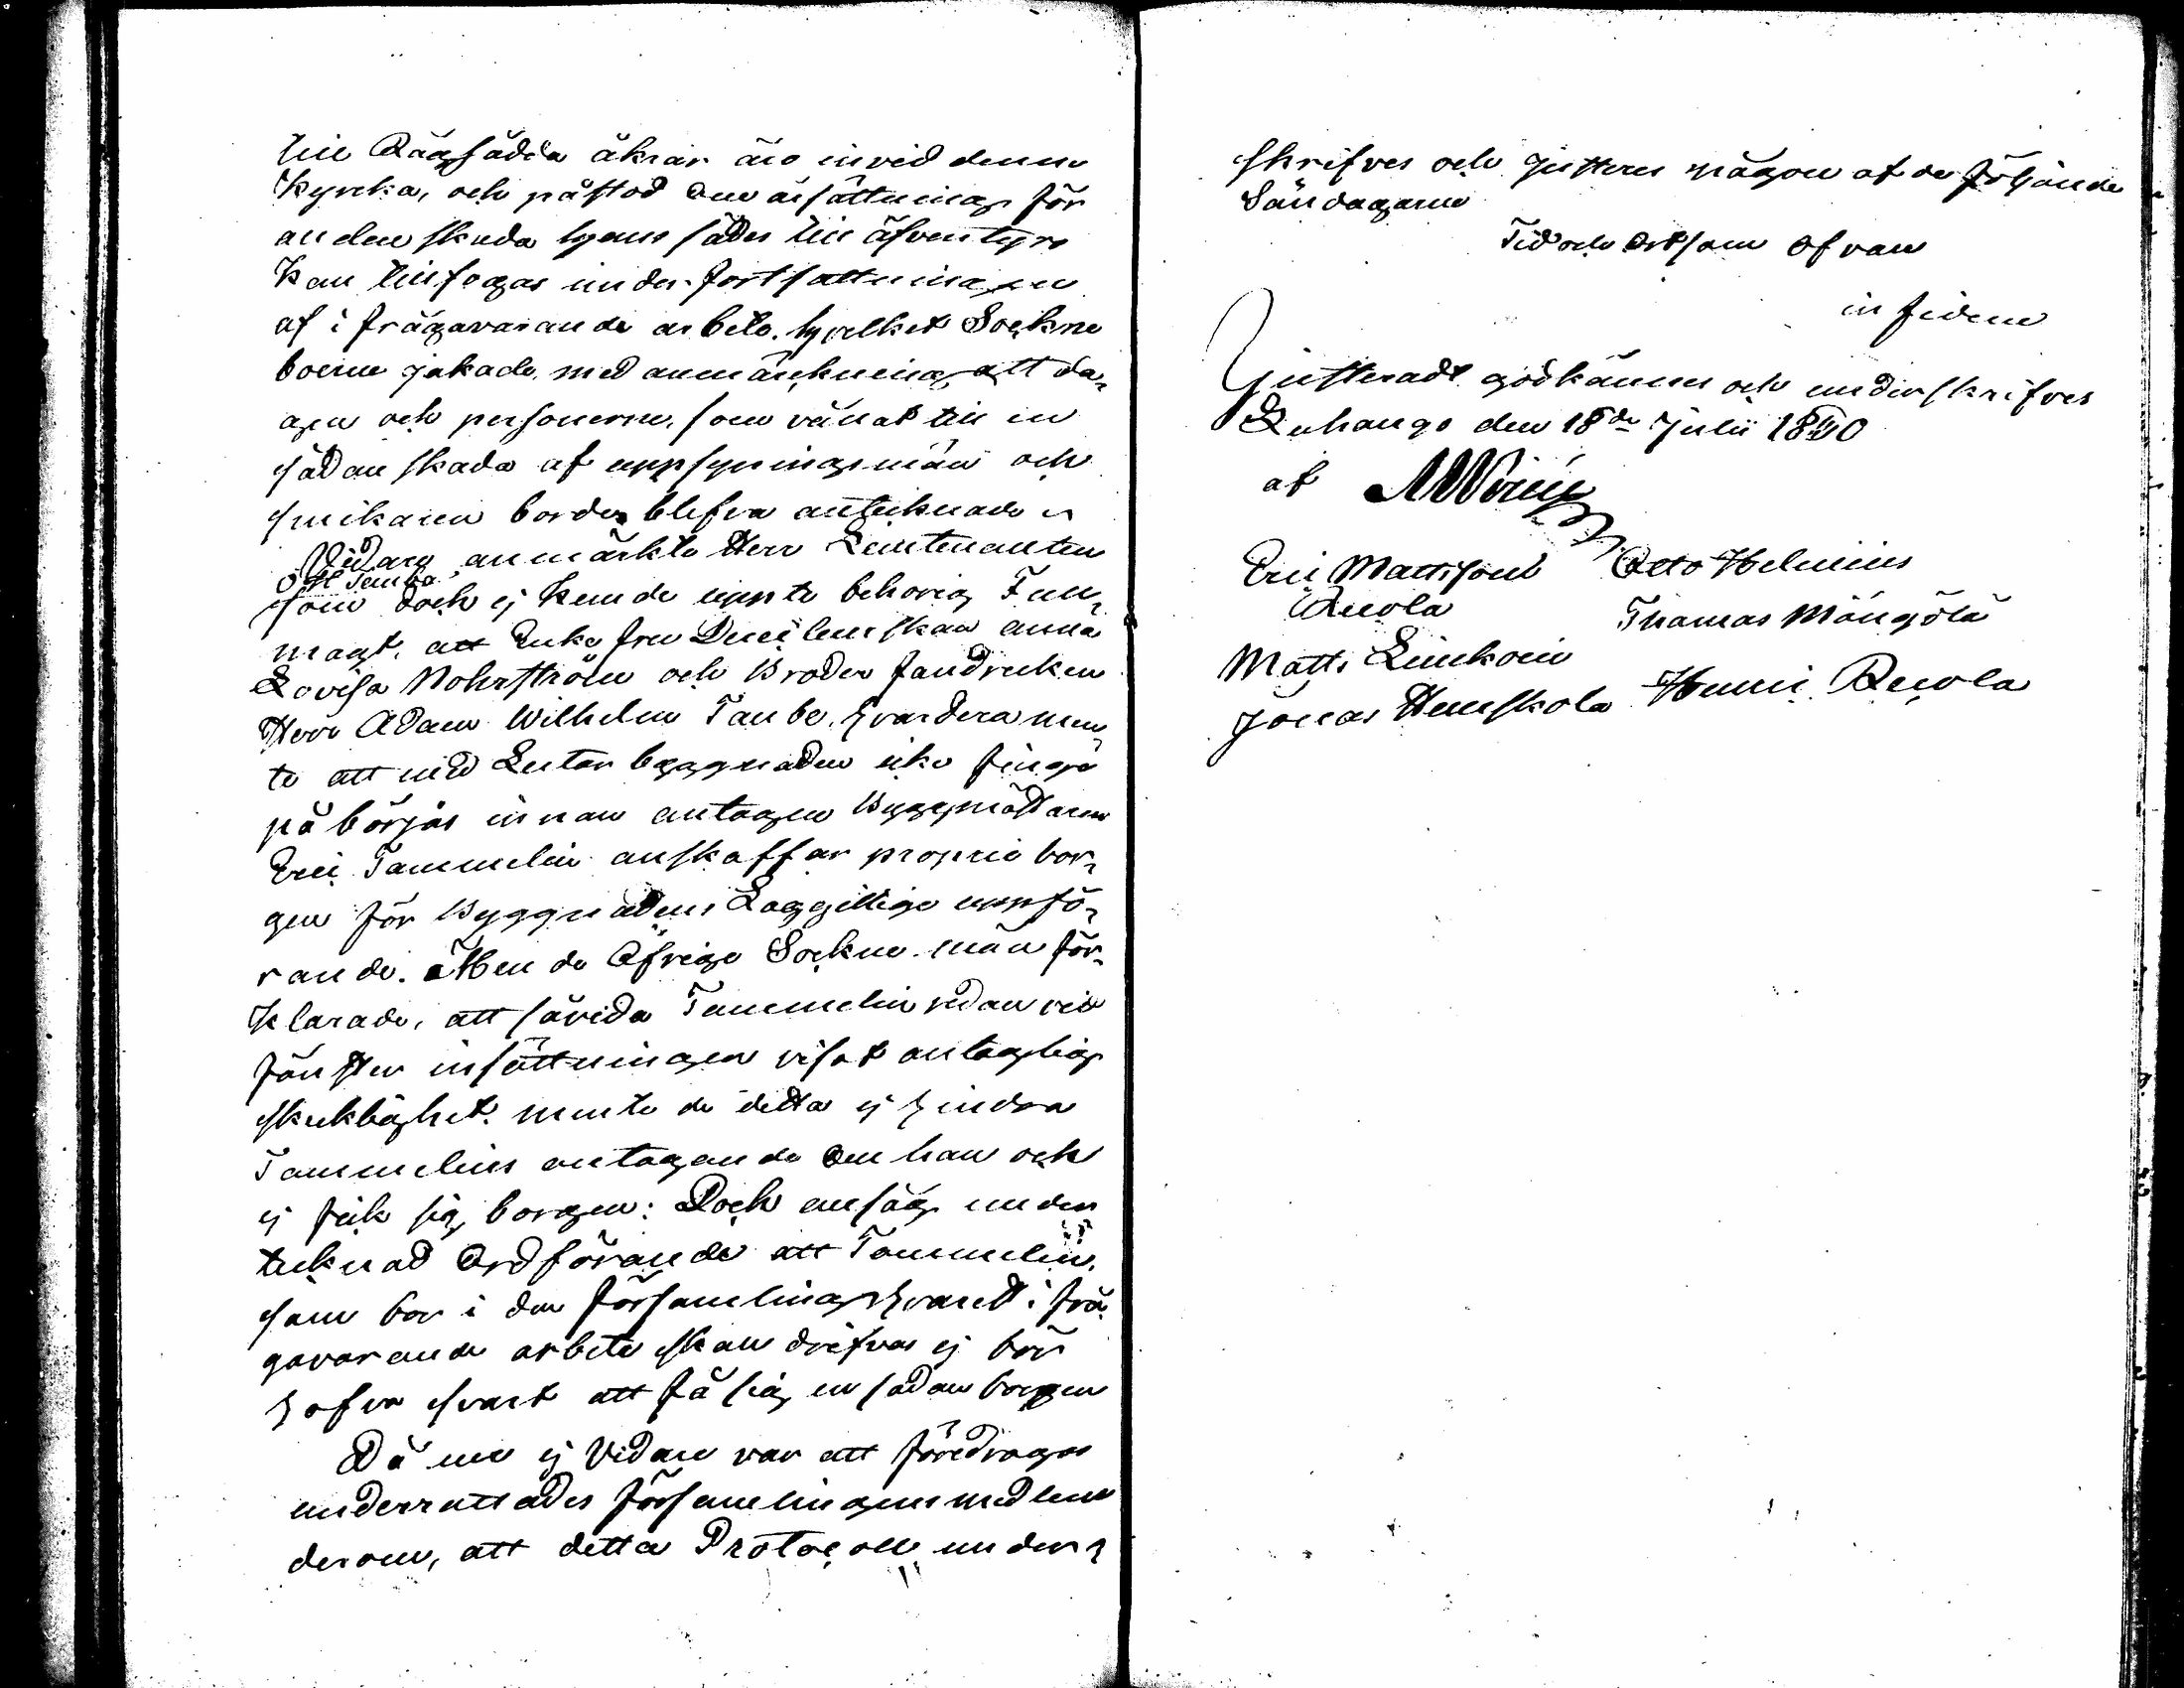 till Rågsådda åkrar äro invid denna
Kyrcka, och påstod Om ärsättning för
an den skada hans sädes till äfventyrs
kan tillfogas under fortsättningen
af i frågavarande arbete, hvilket Sockne
boerne jakade, med anmärkning, att da„
gen och personerne, som vållat till en
sådan skada af uppsyningsmän och
snickaren borde blifva antecknade
Vidare anmärkte Herr Leutenanten
O H Taube
som doch ej kunde uppte behörig Full„
magt, att Enke fru
Lovisa Nohrström och Broder Fendricken
Herr Adam Wilhelm Taube, hvardera men„
te att med Lectar byggnaden icke finge
på börjas innan antagen Byggmästaren
Eric Tammelin anskaffar proprie bor„
gen för Byggnadens Laggillige uppfö„
rande. Men de Öfrige Sockne män för„
klarade, att såvida Tammelin redan vid
fönster insättningen visat antaglig
skicklighet, mente de detta ej hindra
Tammelins antagande Om han och
ej fick sig borgen: Doch ansåg under
tecknad Ordförande att Tammelin,
som bor i den församling hvarest i frå
gavarande arbete skall drifvas ej bör
hafva svart att få sig en sådan borgen
Då nu ej Vidare var att föredragas
underrättades församlingens medlemmar
derom, att detta Protocoll under„
skrifves och justeras någon af de följande
Söndagarne
Tid och Ort som Ofvan
in fidem
Justeradt godkännes och underskrifves
Luhango den 18de Julii 1850
af
Eric Mattsson Otto Helenius
Ruola Thomas Mängölä
Matts Linkoin
Jonas Hemskola Henric Ruola